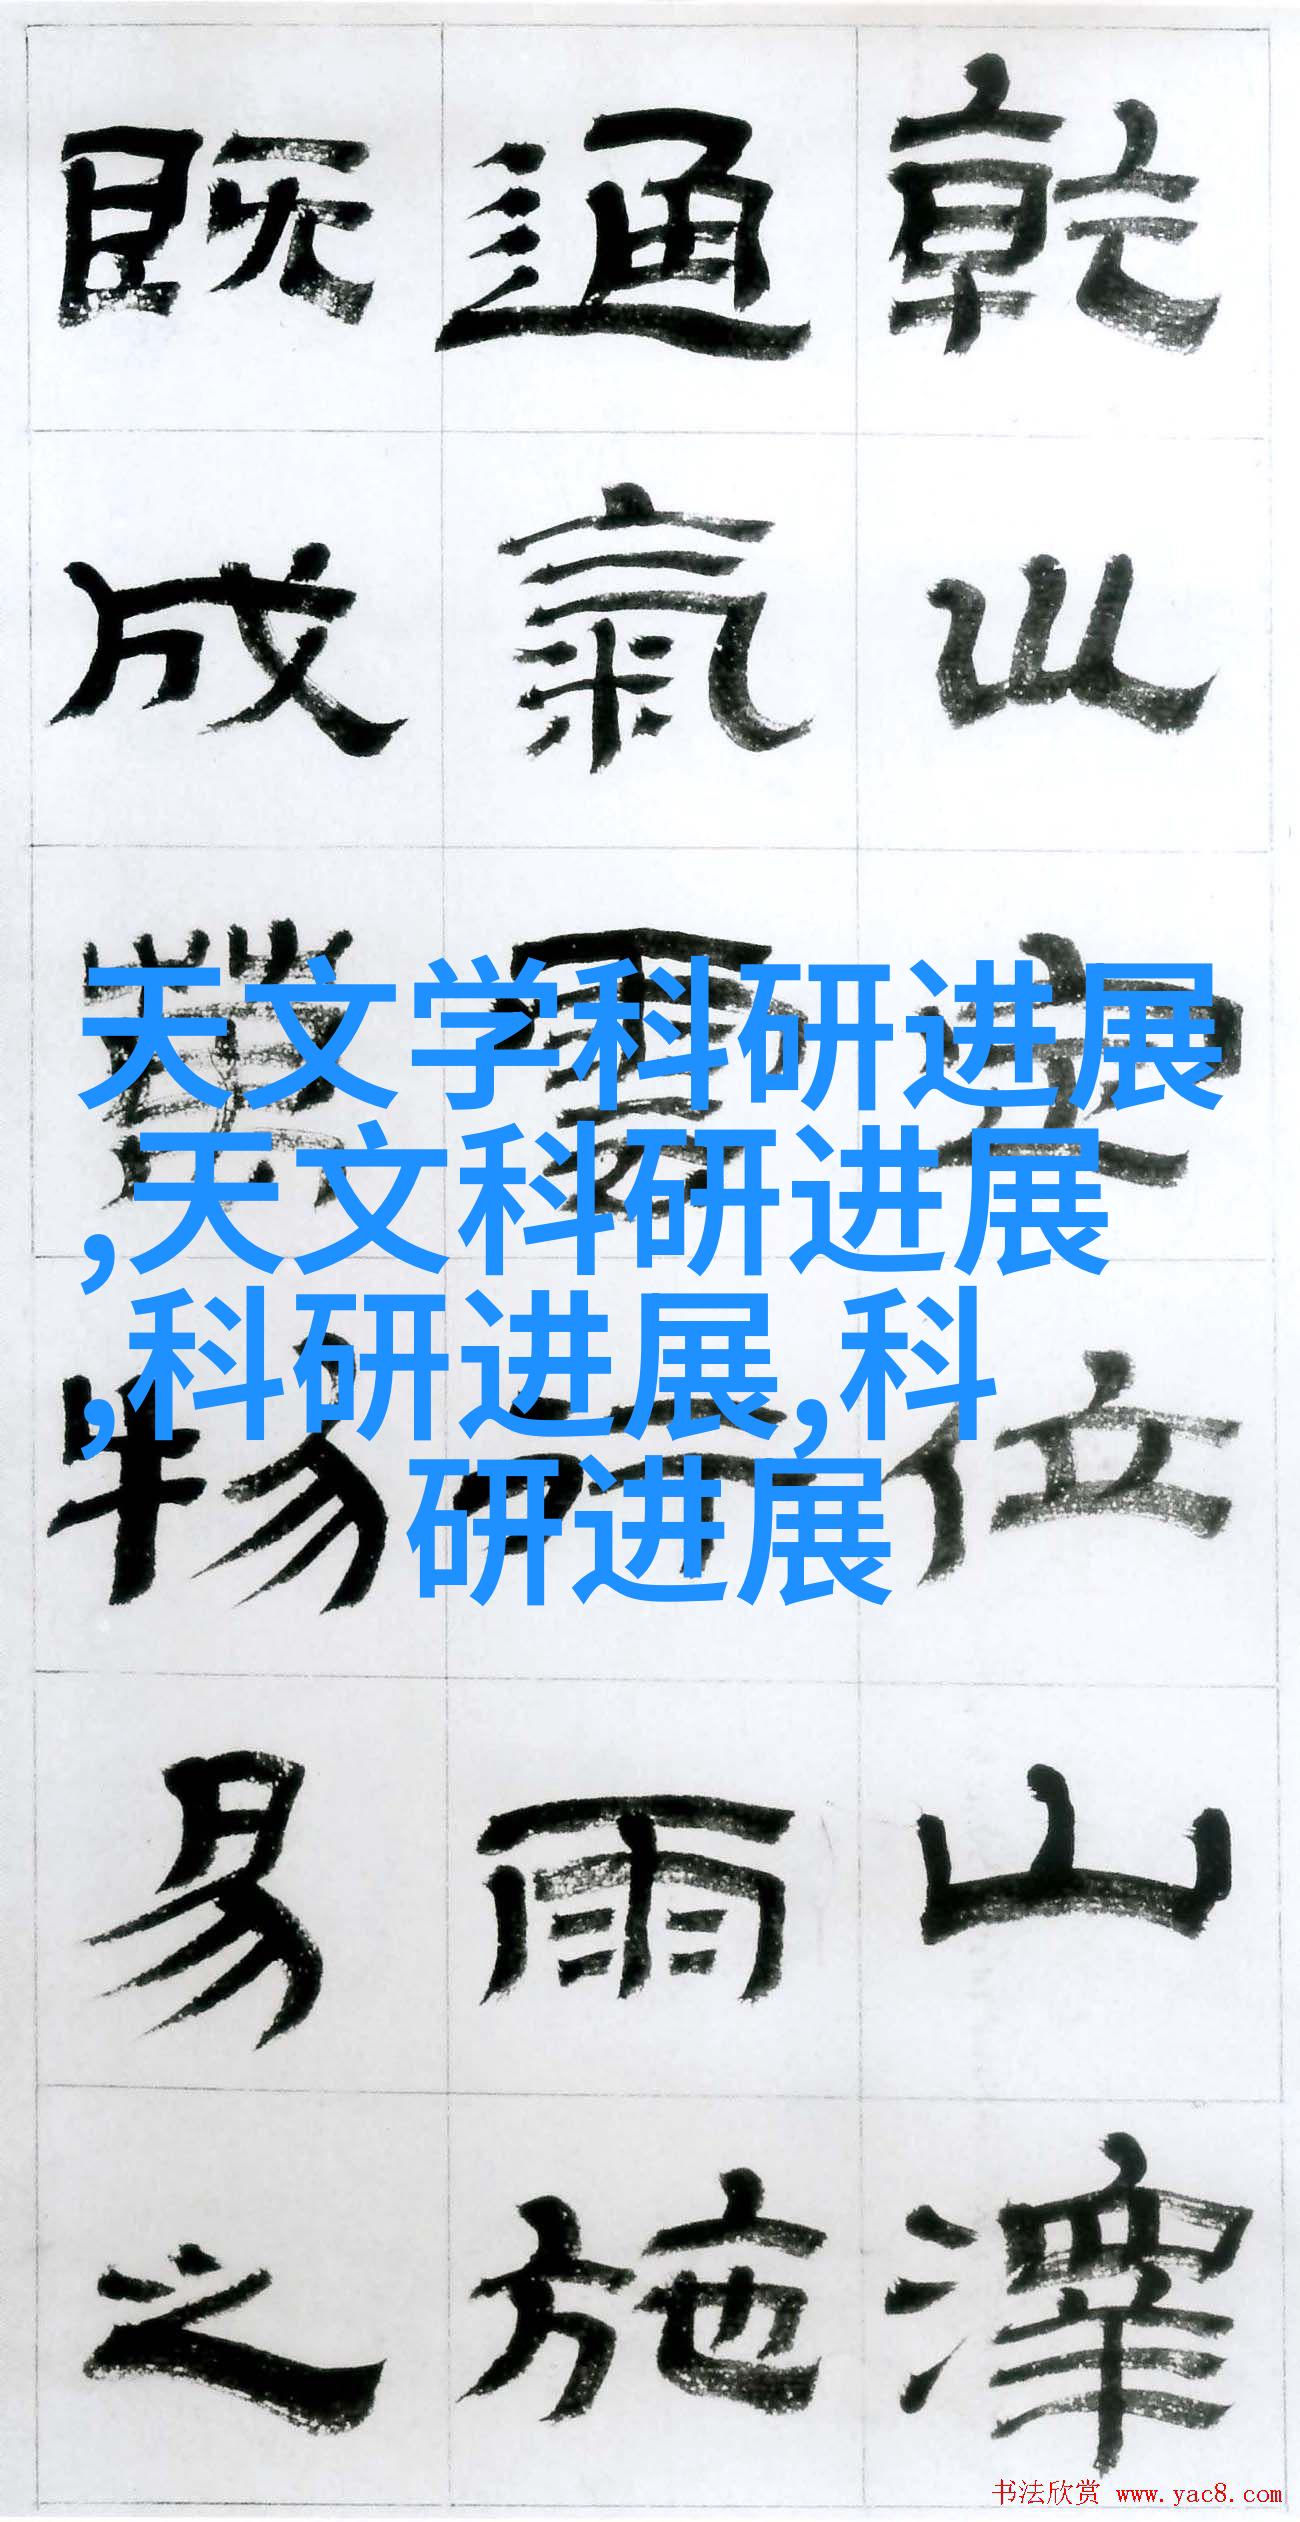 天文学科研进展
,天文科研进展
,科研进展,科
研进展
乾巛定位山澤
通氣雲行雨施
既成物易之
书法欣赏 www.yac8.com